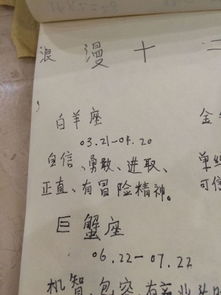 浪漫十
白羊座
03.21-04.20
自信、勇敢、进取、
正直、有冒险精神。
巨蟹座
06.22-07.22
机智、包容、有
金
单纯
可信